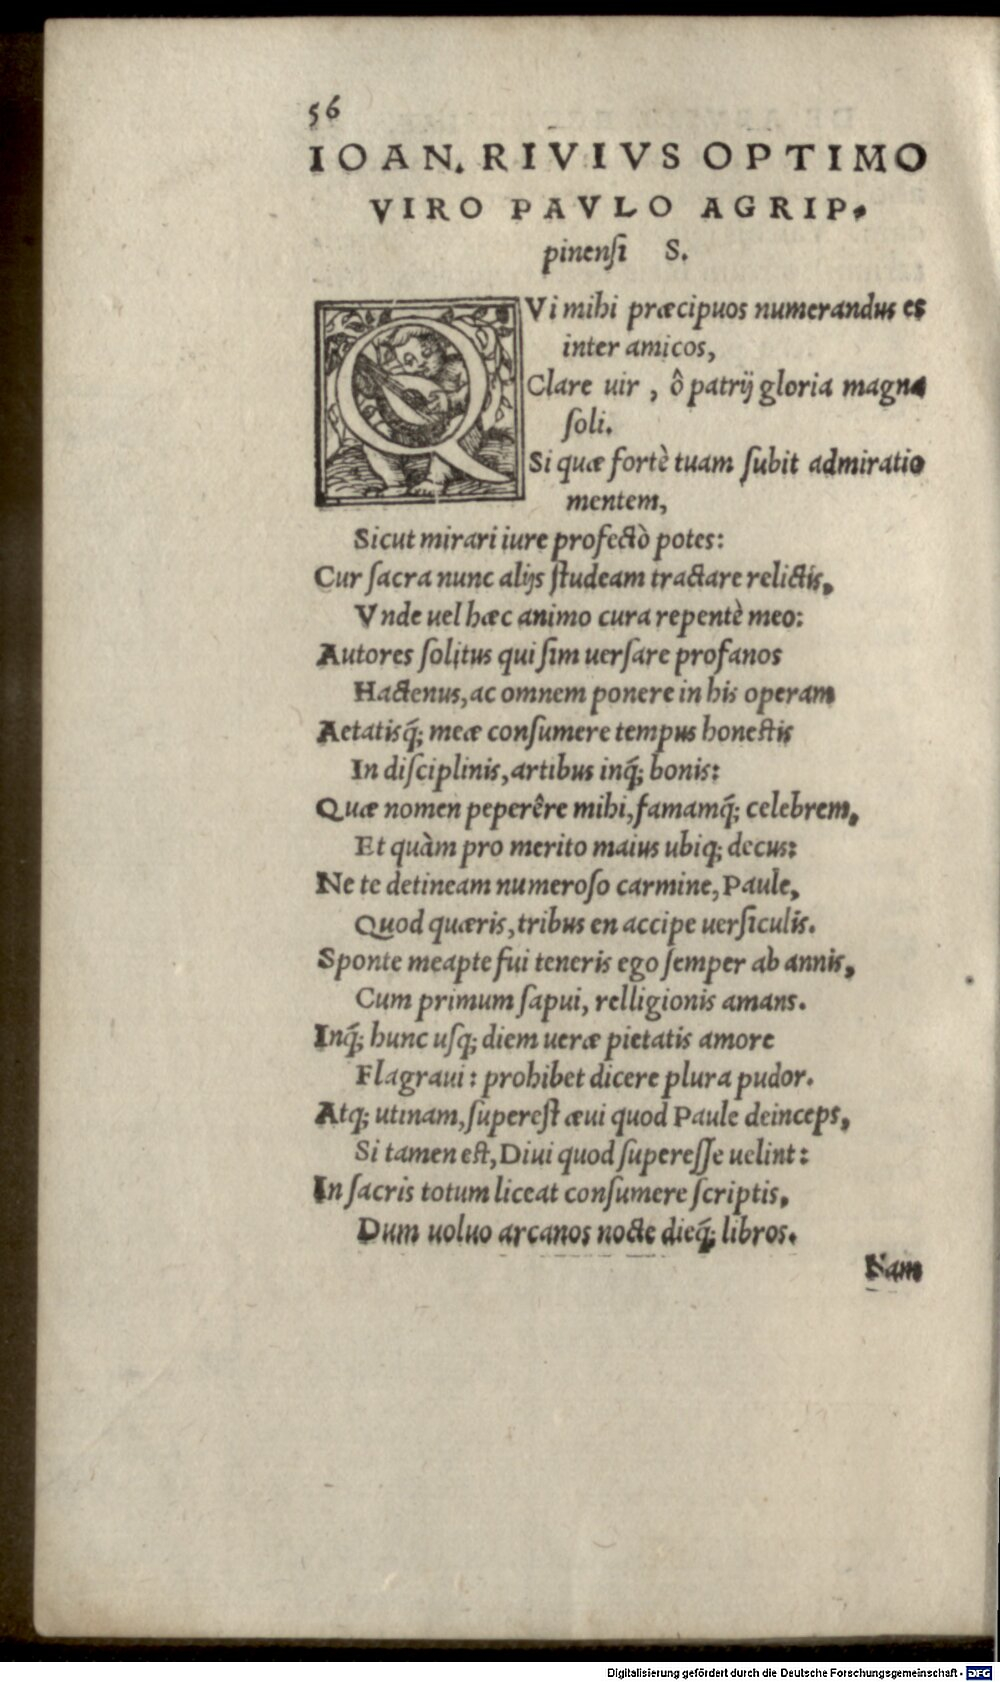 56
IOAN. RIVIVS OPTIMO
VIRO PAVLO AGRIP.
pinenſi S.
QVi mihi præcipuos numerandus es
inter amicos,
Clare uir, ô patrij gloria magna
ſoli.
Si quæ fortè tuam ſubit admiratio
mentem,
Sicut mirari iure profectò potes:
Cur ſacra nunc alijs ſtudeam tractare relictis,
Vnde uel hæc animo cura repentè meo:
Autores ſolitus qui ſim uerſare profanos
Hactenus, ac omnem ponere in his operam
Aetatisq́; meæ conſumere tempus honeſtis
In diſciplinis, artibus inq́; bonis:
Quæ nomen peperêre mihi, famamq́; celebrem,
Et quàm pro merito maius ubiq; decus:
Ne te detineam numeroſo carmine, Paule,
Quod quæris, tribus en accipe uerſiculis.
Sponte meapte fui teneris ego ſemper ab annis,
Cum primum ſapui, relligionis amans.
Inq́; hunc uſq; diem ueræ pietatis amore
Flagraui: prohibet dicere plura pudor.
Atq; utinam, ſupereſt æui quod Paule deinceps,
Si tamen eſt, Diui quod ſupereſſe uelint:
In ſacris totum liceat conſumere ſcriptis,
Dum uoluo arcanos nocte dieq́; libros.
Nam
Digitalisierung gefördert durch die Deutsche Forschungsgemeinschaft - DFG